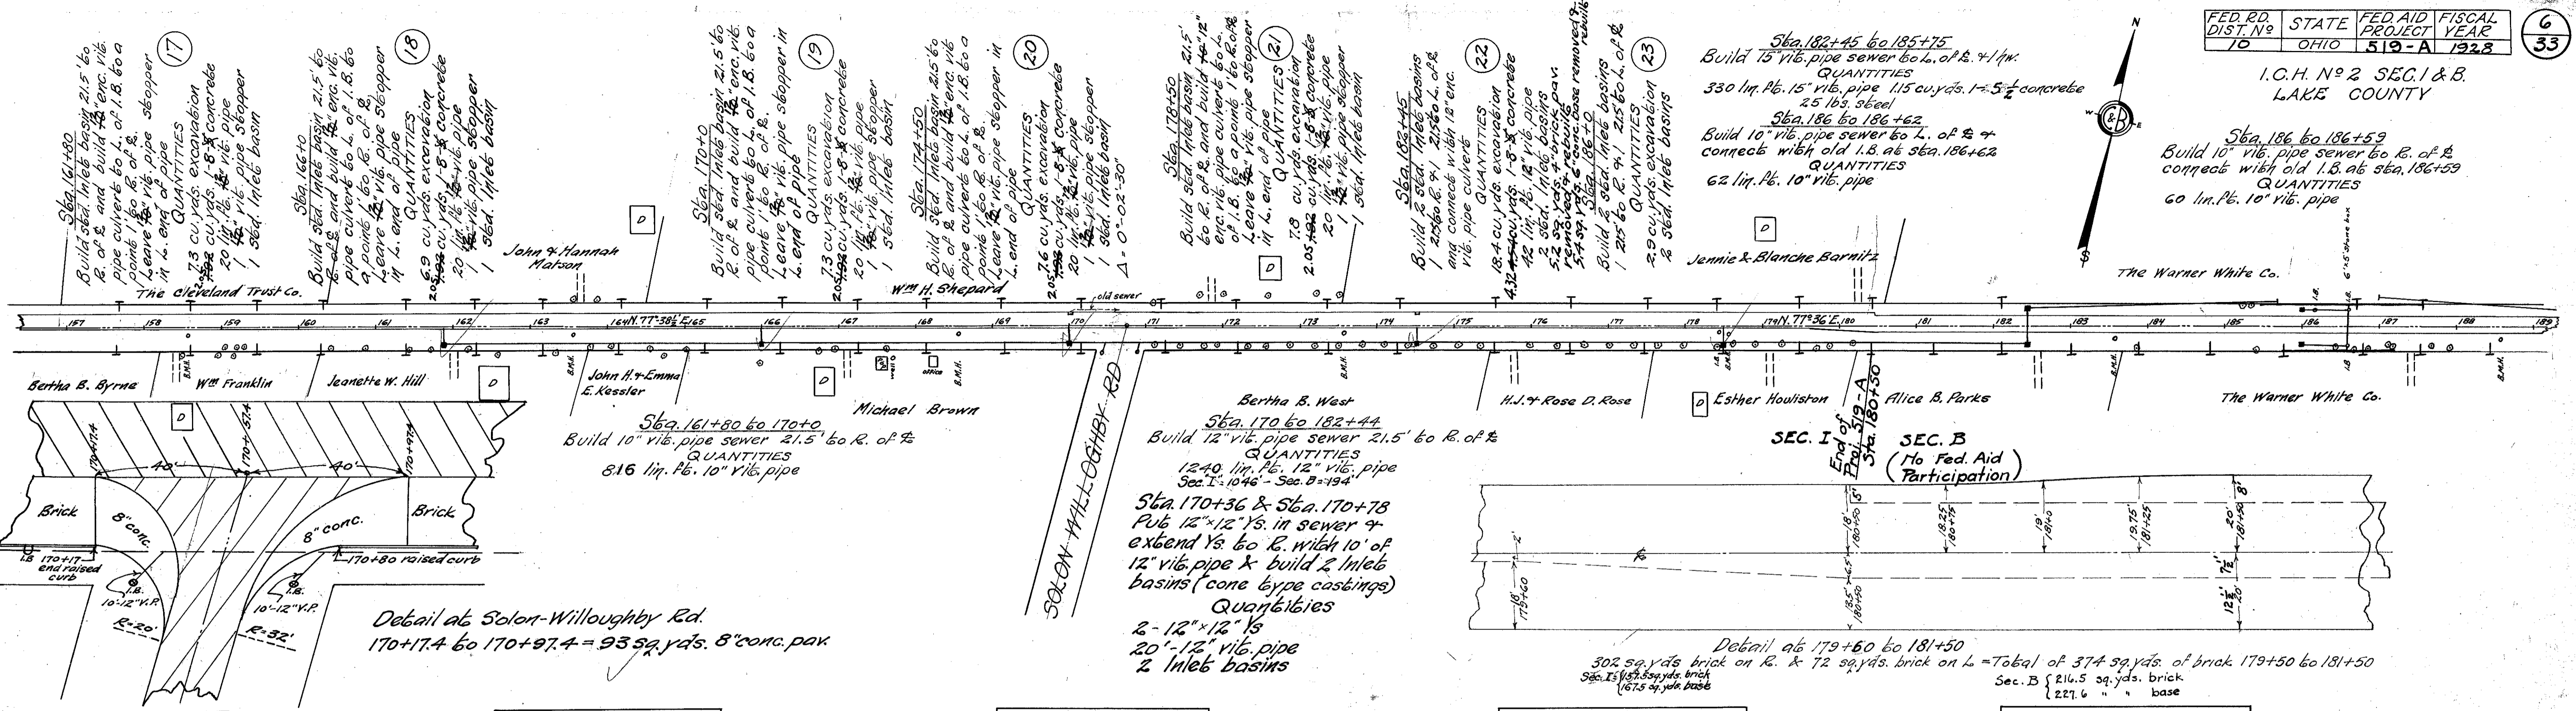 FED. RD. DIST. Nº
STATE
FED. AID PROJECT
FISCAL YEAR
10
OHIO
519-A
1928
6
33
I.C.H. Nº 2 SEC. I & B.
LAKE COUNTY
N
W
E
S
17
Sta. 161+80
Build std. Inlet basin 21.5' to
R. of ℄ and build 12" enc. vit.
pipe culvert to L. of I.B. to a
point 1' to R. of ℄.
Leave 12" vit. pipe stopper
in L. end of pipe
QUANTITIES
7.3 cu. yds. excavation
cu. yds. 1-8- concrete
20 lin. ft. 12" vit. pipe
1 12" vit. pipe stopper
1 std. Inlet basin
18
Sta. 166+0
Build std. Inlet basin 21.5' to
R. of ℄ and build 12" enc. vit.
pipe culvert to L. of I.B. to
a point 1' to R. of ℄.
Leave 12" vit. pipe stopper
in L. end of pipe
QUANTITIES
6.9 cu. yds. excavation
2.05 cu. yds. 1-8- concrete
20 lin. ft. 12" vit. pipe
1 12" vit. pipe stopper
1 std. Inlet basin
19
Sta. 170+0
Build std. Inlet basin 21.5' to
R. of ℄ and build 12" enc. vit.
pipe culvert to L. of I.B. to a
point 1' to R. of ℄.
Leave 12" vit. pipe stopper in
L. end of pipe
QUANTITIES
7.3 cu. yds. excavation
2.05 cu. yds. 1-8- concrete
20 lin. ft. 12" vit. pipe
1 12" vit. pipe stopper
1 std. Inlet basin
20
Sta. 174+50
Build std. Inlet basin 21.5' to
R. of ℄ and build 12" enc. vit.
pipe culvert to L. of I.B. to a
point 1' to R. of ℄.
Leave 12" vit. pipe stopper in
L. end of pipe
QUANTITIES
7.6 cu. yds. excavation
2.05 cu. yds. 1-8- concrete
20 lin. ft. 12" vit. pipe
1 12" vit. pipe stopper
1 std. Inlet basin
Δ = 0°-02'-30"
21
Sta. 178+50
Build std. Inlet basin 21.5'
to R. of ℄ and build 12"
enc. vit. pipe culvert to L.
of I.B. to a point 1' to R. of ℄
Leave 12" vit. pipe stopper
in L. end of pipe
QUANTITIES
7.8 cu. yds. excavation
2.05 cu. yds. 1-8- concrete
20 lin. ft. 12" vit. pipe
1 12" vit. pipe stopper
1 std. Inlet basin
22
Sta. 182+45
Build 2 std. Inlet basins
1 21.5' to R. & 1 21.5' to L. of ℄
and connect with 12" enc.
vit. pipe culvert
QUANTITIES
18.4 cu. yds. excavation
4.32 cu. yds. 1-8- concrete
42 lin. ft. 12" vit. pipe
2 std. Inlet basins
52 sq. yds. brick pav.
removed & rebuilt
54 sq. yds. 6" conc. base removed & rebuilt
23
Sta. 186+0
Build 2 std. Inlet basins
1 21.5' to R. & 1 21.5' to L. of ℄
QUANTITIES
2.9 cu. yds. excavation
2 std. Inlet basins
Sta. 182+45 to 185+75
Build 15" vit. pipe sewer to L. of ℄. & 1 hw.
QUANTITIES
330 lin. ft. 15" vit. pipe 1.15 cu. yds. concrete
25 lbs. steel
Sta. 186 to 186+62
Build 10" vit. pipe sewer to L. of ℄ &
connect with old I.B. at sta. 186+62
QUANTITIES
62 lin. ft. 10" vit. pipe
Sta. 186 to 186+59
Build 10" vit. pipe sewer to R. of ℄
connect with old I.B. at sta. 186+59
QUANTITIES
60 lin. ft. 10" vit. pipe
The Cleveland Trust Co.
John & Hannah
Matson
D
Wm H. Shepard
old sewer
D
Jennie & Blanche Barnitz
D
The Warner White Co.
6'×5' Stone box
157 158 159 160 161 162 163 164 N. 77°-38½' E. 165 166 167 168 169 170 171 172 173 174 175 176 177 178 179 N. 77°36' E. 180 181 182 183 184 185 186 187 188 189
B.M.H.
I.B.
Bertha B. Byrne
Wm Franklin
Jeanette W. Hill
D
D
John H. & Emma
E. Kessler
D
OFFICE
Michael Brown
SOLON WILLOUGHBY RD
Bertha B. West
H.J. & Rose D. Rose
D
Esther Houliston
Alice B. Parks
The Warner White Co.
Sta. 161+80 to 170+0
Build 10" vit. pipe sewer 21.5' to R. of ℄
QUANTITIES
816 lin. ft. 10" vit. pipe
Sta. 170 to 182+44
Build 12" vit. pipe sewer 21.5' to R. of ℄
QUANTITIES
1240 lin. ft. 12" vit. pipe
Sec. I = 1046' - Sec. B = 194'
Sta. 170+36 & Sta. 170+78
Put 12"×12" Ys. in sewer &
extend Ys. to R. with 10' of
12" vit. pipe & build 2 Inlet
basins (cone type castings)
Quantities
2-12"×12" Ys
20'-12" vit. pipe
2 Inlet basins
SEC. I
End of
Proj. 519-A
Sta. 180+50
SEC. B
(No Fed. Aid
Participation)
170+17.4
170+57.4
170+97.4
40'
40'
Brick
8" conc.
8" conc.
Brick
I.B. 170+17
end raised
curb
170+80 raised curb
I.B.
10'-12" V.P.
R=20'
I.B.
10'-12" V.P.
R=32'
Detail at Solon-Willoughby Rd.
170+17.4 to 170+97.4 = 93 sq. yds. 8" conc. pav.
2'
18'
179+60
℄
5'
18'
180+50
6.5'
13.5'
180+50
18.25'
180+75
19'
181+0
19.75'
181+25
8'
20'
181+50
7½'
12½'
20'
Detail at 179+60 to 181+50
302 sq. yds brick on R. & 72 sq. yds. brick on L = Total of 374 sq. yds. of brick 179+50 to 181+50
Sec. I { 157.5 sq. yds. brick
{ 167.5 sq. yds. base
Sec. B { 216.5 sq. yds. brick
{ 227.6 " " base